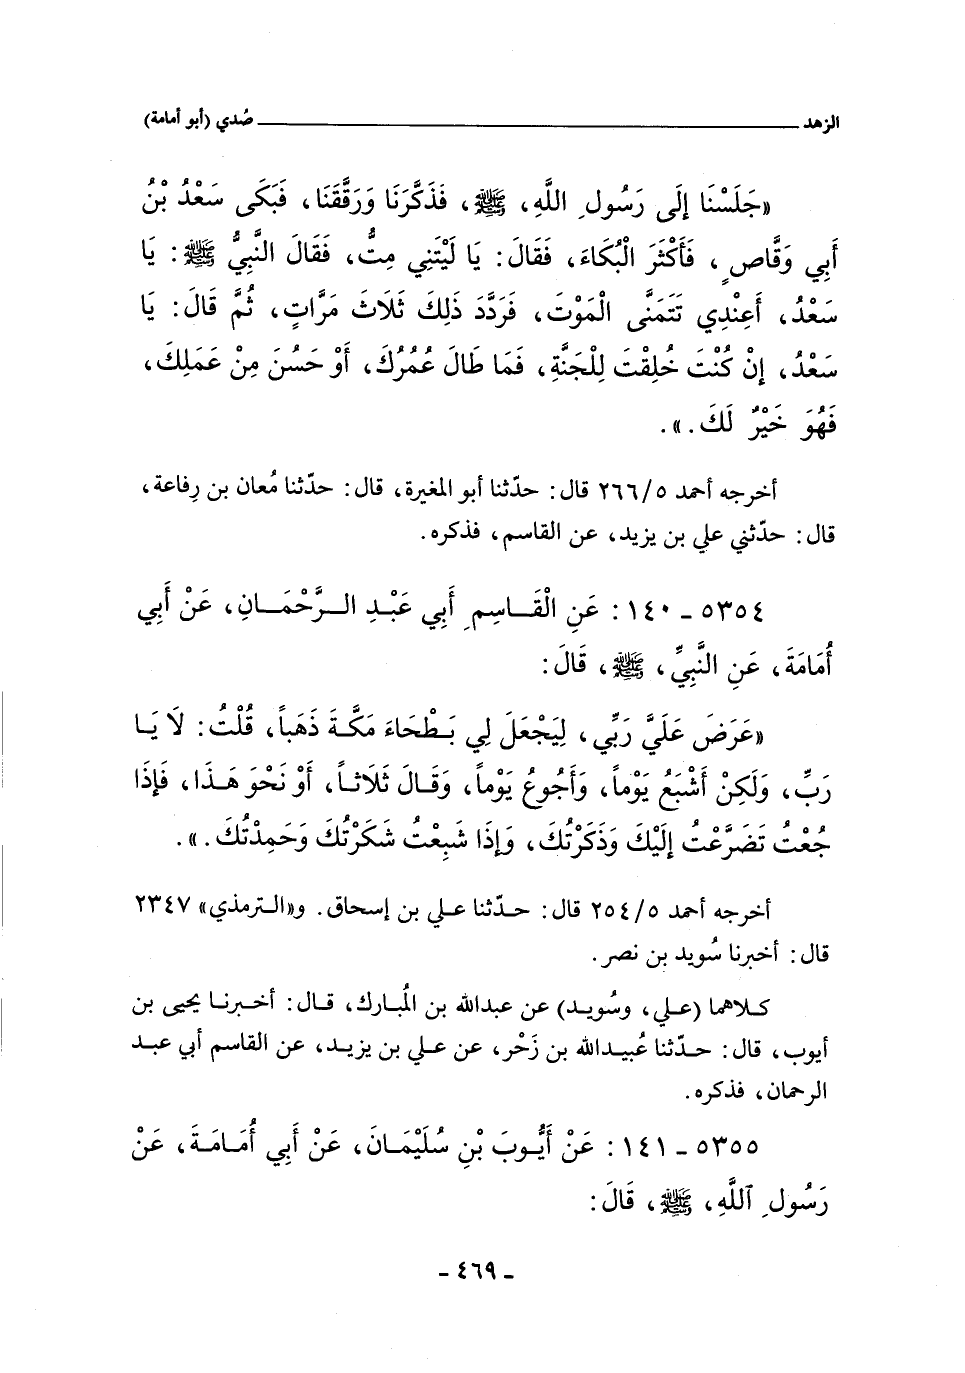 الزهد صُدي (أبو أمامة)
«جَلَسْنَا إِلَى رَسُولِ اللَّهِ، ﷺ، فَذَكَّرَنَا وَرَقَّقَنَا، فَبَكَى سَعْدُ بْنُ
أَبِي وَقَّاصٍ، فَأَكْثَرَ الْبُكَاءَ، فَقَالَ: يَا لَيْتَنِي مِتُّ، فَقَالَ النَّبِيُّ ﷺ: يَا
سَعْدُ، أَعِنْدِي تَتَمَنَّى الْمَوْتَ، فَرَدَّدَ ذَلِكَ ثَلَاثَ مَرَّاتٍ، ثُمَّ قَالَ: يَا
سَعْدُ، إِنْ كُنْتَ خُلِقْتَ لِلْجَنَّةِ، فَمَا طَالَ عُمُرُكَ، أَوْ حَسُنَ مِنْ عَمَلِكَ،
فَهُوَ خَيْرٌ لَكَ.».
أخرجه أحمد ٢٦٦/٥ قال: حدّثنا أبو المغيرة، قال: حدّثنا مُعان بن رِفاعة،
قال: حدّثني علي بن يزيد، عن القاسم، فذكره.
٥٣٥٤ - ١٤٠: عَنِ الْقَاسِمِ أَبِي عَبْدِ الرَّحْمَانِ، عَنْ أَبِي
أُمَامَةَ، عَنِ النَّبِيِّ، ﷺ، قَالَ:
«عَرَضَ عَلَيَّ رَبِّي، لِيَجْعَلَ لِي بَطْحَاءَ مَكَّةَ ذَهَباً، قُلْتُ: لَا يَا
رَبِّ، وَلَكِنْ أَشْبَعُ يَوْماً، وَأَجُوعُ يَوْماً، وَقَالَ ثَلَاثاً، أَوْ نَحْوَ هَذَا، فَإِذَا
جُعْتُ تَضَرَّعْتُ إِلَيْكَ وَذَكَرْتُكَ، وَإِذَا شَبِعْتُ شَكَرْتُكَ وَحَمِدْتُكَ.».
أخرجه أحمد ٢٥٤/٥ قال: حدّثنا علي بن إسحاق. و«الترمذي» ٢٣٤٧
قال: أخبرنا سُويد بن نصر.
كلاهما (علي، وسُويد) عن عبدالله بن المُبارك، قال: أخبرنا يحيى بن
أيوب، قال: حدّثنا عُبيدالله بن زَحْر، عن علي بن يزيد، عن القاسم أبي عبد
الرحمان، فذكره.
٥٣٥٥ - ١٤١: عَنْ أَيُّوبَ بْنِ سُلَيْمَانَ، عَنْ أَبِي أُمَامَةَ، عَنْ
رَسُولِ ٱللَّهِ، ﷺ، قَالَ:
- ٤٦٩ -